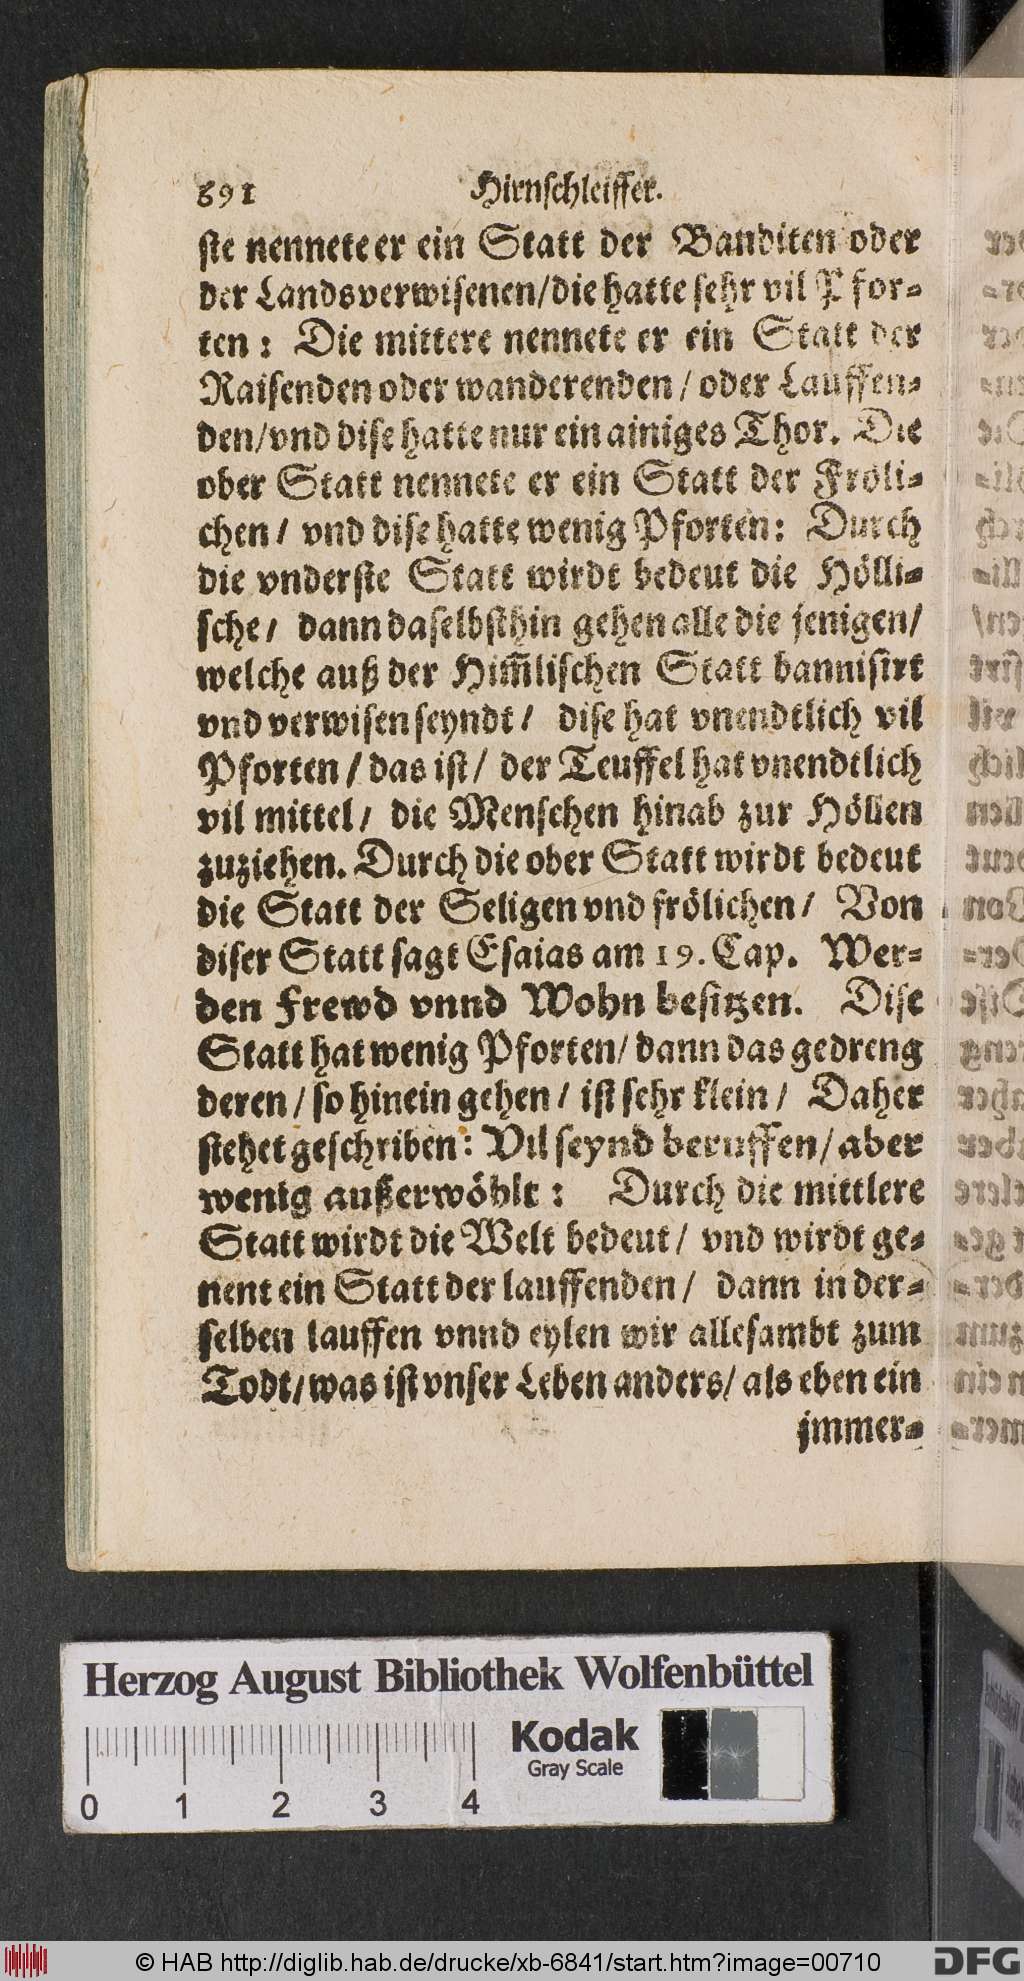 691 Hirnschleiffer.
ste nennete er ein Statt der Banditen oder
der Landsverwisenen/die hatte sehr vil Pfor-
ten: Die mittere nennete er ein Statt der
Raisenden oder wanderenden / oder Lauffen-
den/vnd dise hatte nur ein ainiges Thor. Die
ober Statt nennete er ein Statt der Fröli-
chen / vnd dise hatte wenig Pforten: Durch
die vnderste Statt wirdt bedeut die Hölli-
sche / dann daselbsthin gehen alle die jenigen/
welche auß der Him̃lischen Statt bannisirt
vnd verwisen seyndt / dise hat vnendtlich vil
Pforten / das ist / der Teuffel hat vnendtlich
vil mittel / die Menschen hinab zur Höllen
zuziehen. Durch die ober Statt wirdt bedeut
die Statt der Seligen vnd frölichen / Von
diser Statt sagt Esaias am 19. Cap. Wer-
den Frewd vnnd Wohn besitzen. Dise
Statt hat wenig Pforten/ dann das gedreng
deren / so hinein gehen / ist sehr klein / Daher
stehet geschriben: Vil seynd beruffen/ aber
wenig außerwöhlt: Durch die mittlere
Statt wirdt die Welt bedeut / vnd wirdt ge-
nent ein Statt der lauffenden / dann in der-
selben lauffen vnnd eylen wir allesambt zum
Todt/ was ist vnser Leben anders/ als eben ein
jmmer-
Herzog August Bibliothek Wolfenbüttel
Kodak
Gray Scale
0 1 2 3 4
© HAB http://diglib.hab.de/drucke/xb-6841/start.htm?image=00710
DFG